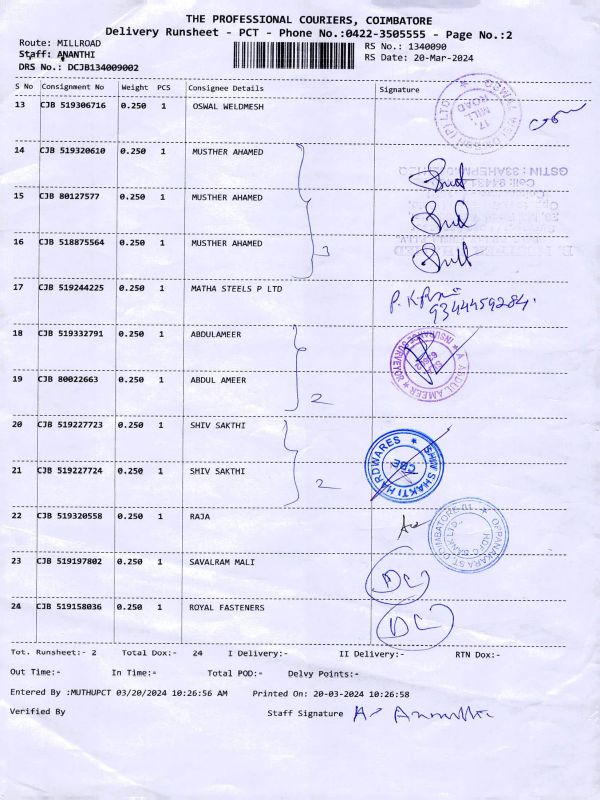 THE PROFESSIONAL COURIERS, COIMBATORE
Delivery Runsheet - PCT - Phone No.:0422-3505555 - Page No.:2
Route: MILLROAD RS No.: 1340090
Staff: ANANTHI RS Date: 20-Mar-2024
DRS No.: DCJB134009002
S No Consignment No Weight PCS Consignee Details Signature
13 CJB 519306716 0.250 1 OSWAL WELDMESH
17 MILL ROAD
14 CJB 519320610 0.250 1 MUSTHER AHAMED
15 CJB 80127577 0.250 1 MUSTHER AHAMED
16 CJB 518875564 0.250 1 MUSTHER AHAMED
3
17 CJB 519244225 0.250 1 MATHA STEELS P LTD
9344459284.
18 CJB 519332791 0.250 1 ABDULAMEER
A. ABDUL AMEER ★ INSURANCE SURVEYOR ★
19 CJB 80022663 0.250 1 ABDUL AMEER
2
20 CJB 519227723 0.250 1 SHIV SAKTHI
21 CJB 519227724 0.250 1 SHIV SAKTHI
2
★ SHIV SHAKTI HARDWARES
CBE
22 CJB 519320558 0.250 1 RAJA
OPPANAKARA ST. COIMBATORE
HDFC BANK LTD.
23 CJB 519197802 0.250 1 SAVALRAM MALI
DC
24 CJB 519158036 0.250 1 ROYAL FASTENERS
DC
Tot. Runsheet:- 2 Total Dox:- 24 I Delivery:- II Delivery:- RTN Dox:-
Out Time:- In Time:- Total POD:- Delvy Points:-
Entered By :MUTHUPCT 03/20/2024 10:26:56 AM Printed On: 20-03-2024 10:26:58
Verified By Staff Signature